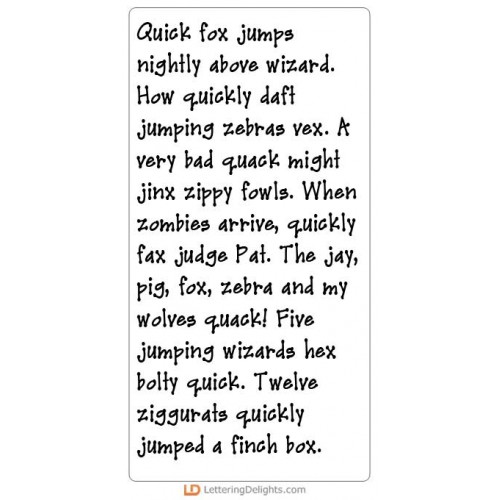 Quick fox jumps
nightly above wizard.
How quickly daft
jumping zebras vex. A
very bad quack might
jinx zippy fowls. When
zombies arrive, quickly
fax judge Pat. The jay,
pig, fox, zebra and my
wolves quack! Five
jumping wizards hex
bolty quick. Twelve
ziggurats quickly
jumped a finch box.
LD LetteringDelights.com